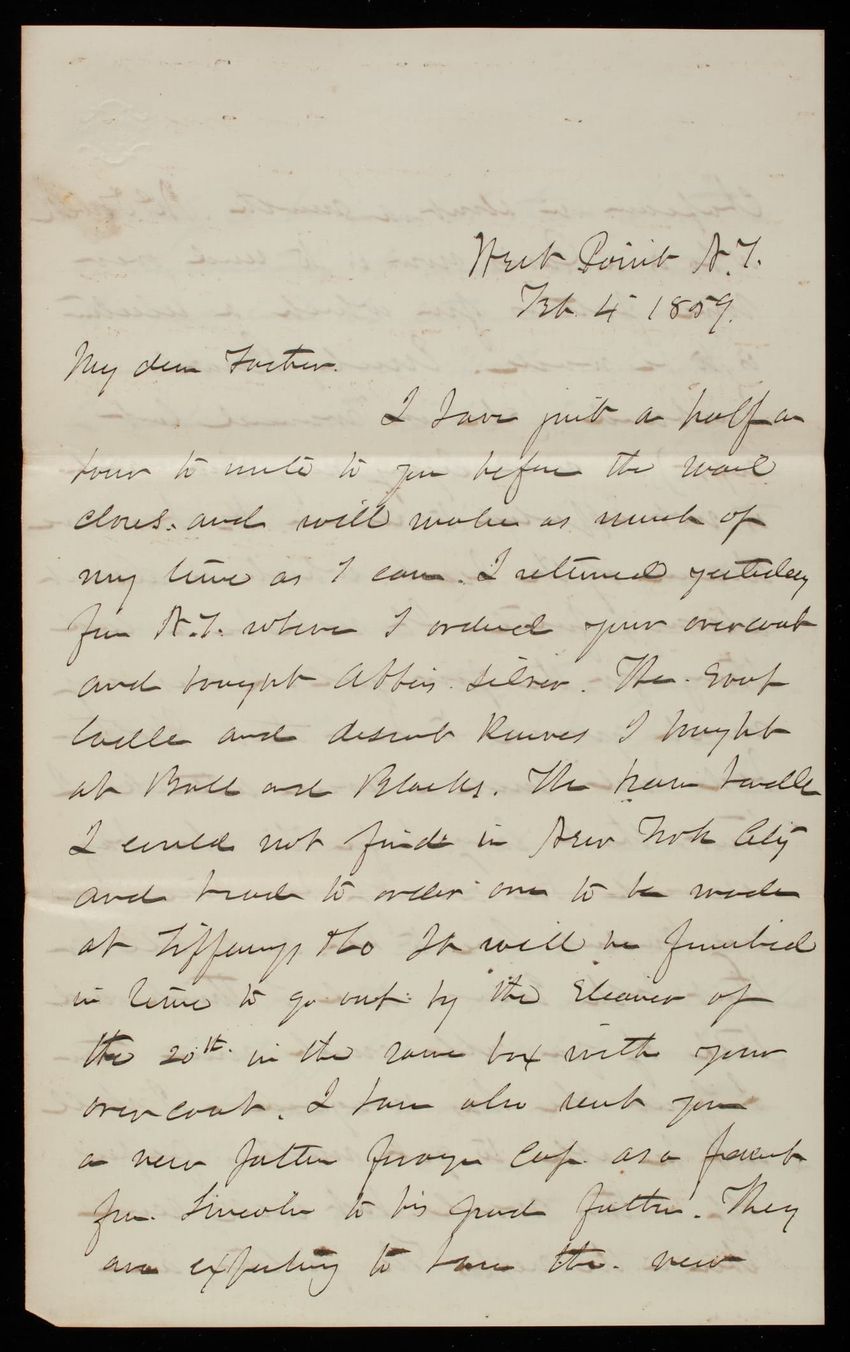 West Point N.Y.
Feb. 4 1859.
My dear Father.
I have just a half an
hour to write to you before the mail
closes. and will make as much of
my time as I can. I returned yesterday
from N.Y. where I ordered your overcoat
and bought Abbies. Silver. The. Soup
ladle and desert Knives I bought
at Ball and Blacks. The ladle
I could not find in New York City
and had to order one to be made
at Tiffanys &Co It will be finished
in time to go out by the Steamer of
the 20th. in the same box with your
overcoat. I have also sent you
a new pattern forage cap. as a present
from Lincoln to his grand father. They
are expecting to have the. new